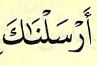 أَرْسَلْنَٰكَ